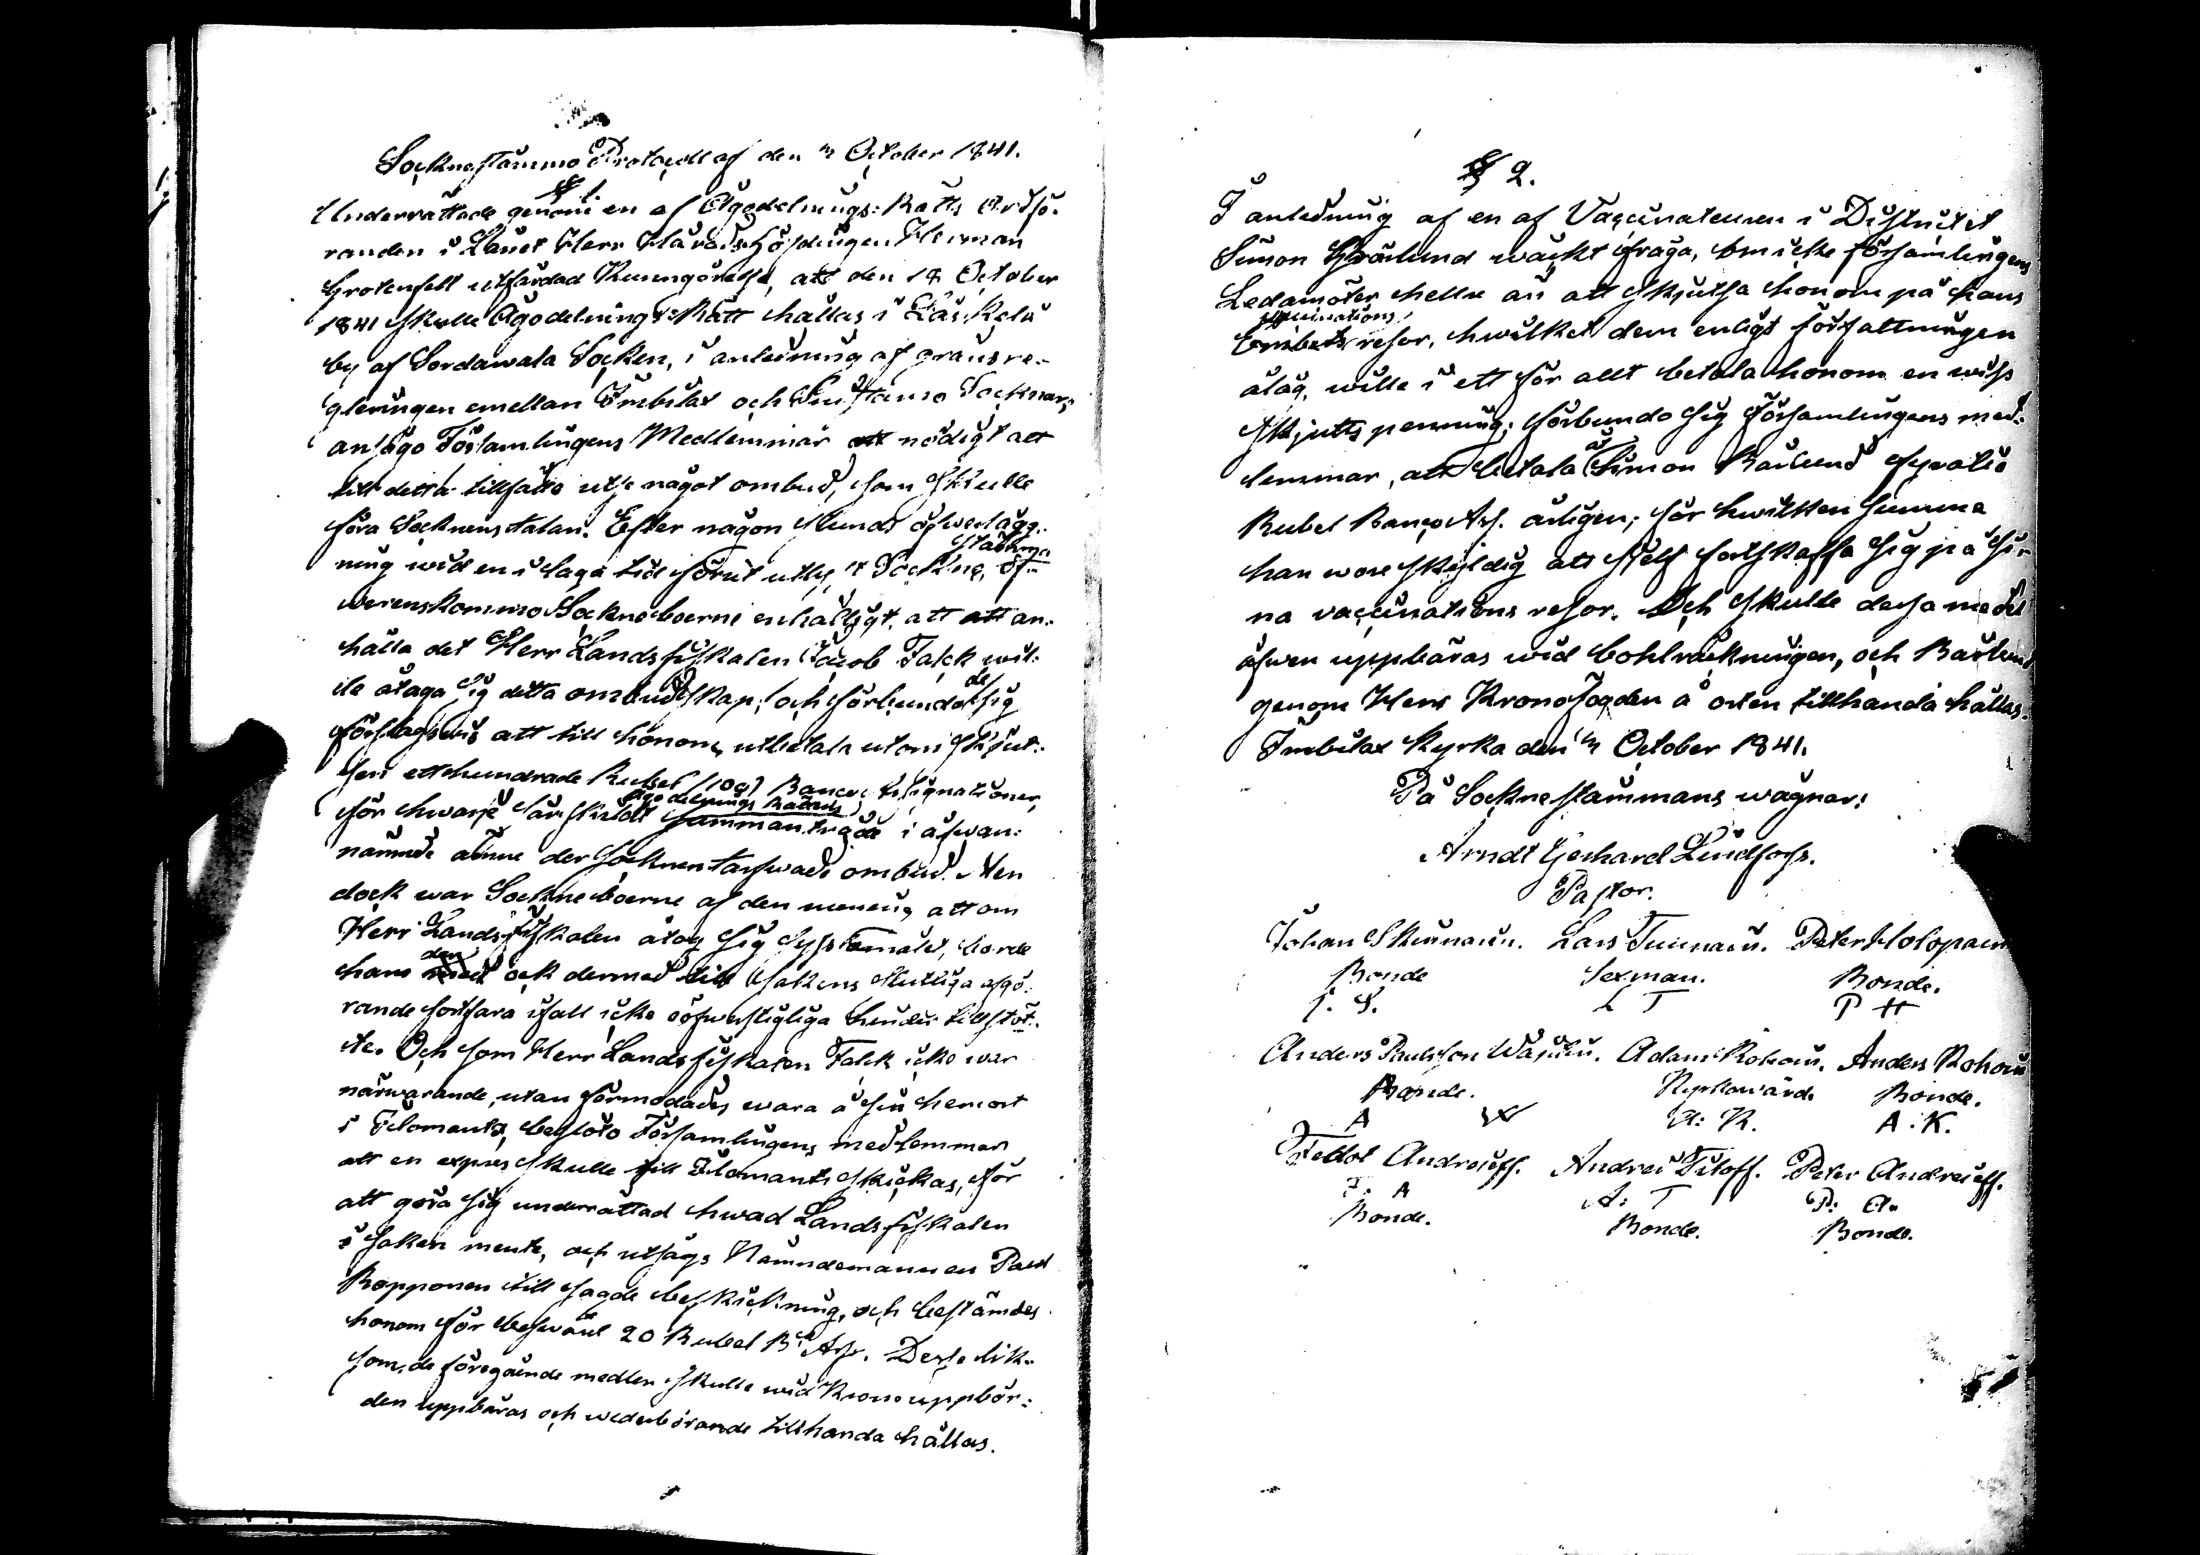 Socknestämmo Protocoll af den 3/15 October 1841.
§ 1.
Underrättade genom en af Ägodelnings-Rätts Ordfö-
randen i Länet Herr Häradshöfdingen Herman
Grotenfelt utfärdad Kungörelse, att den 18 October
1841 skulle Ägodelnings-Rätt hållas i Läskelä
by af Sordawala Socken, i anledning af gränsre-
gleringen emellan Imbilax och Suistamo Socknar,
ansågo Församlingens Medlemmar nödigt att
till detta tillfälle utse något ombud, som skulle
föra Socknens talan. Efter någon stunds öfverlägg-
ning wid en i laga tid förut utlyst Sockne stämma öf-
werenskommo Sockneboerne enhälligt, att an-
hålla det Herr Landsfiskalen Jacob Falck wil-
le åtaga sig detta ombudskap; och förbundo de sig
förslagswis att till honom utbetala utom skjut-
sen etthundrade Rubel /100/ Banco Assignationer,
för hwarje särskildt Ägodelnings Rättens sammanträde i ofwan-
nämnde ämne der socknen tarfwade ombud. Men
dock war Sockneboerne af den mening att om
Herr Landsfiskalen åtog sig sysslomålet, borde
han den ock dermed till sakens slutliga afgö-
rande fortfara ifall icke oöfwerstigliga hinder tillstöt-
te. Och som Herr Landsfiskalen Falck icke war
närwarande, utan förmodades wara å sin hemort
i Ilomants, beslöto Församlingens medlemmar
att en expres skulle till Ilomants skickas, för
att göra sig underrättad hwad Landsfiskalen
i saken mente, och utsågs Nämndemannen Paul
Ropponen till sagde beskickning, och bestämdes
honom för beswäret 20 Rubel Bco Ass. Desse lik-
som de föregående medlen skulle wid Kronouppbör-
den uppbäras och wederbörande tillhanda hållas.
§ 2.
I anledning af en af Vaccinateuren i Districtet
Simon Bärlund wäckt fråga, om icke församlingens
Ledamöter hellre än att skjutsa honom på hans
vaccinations
Embets resor, hwilket dem enligt författningen
ålåg, wille i ett för allt betala honom en wiss
skjutspenning; förbundo sig Församlingens med-
lemmar, att betala åt Simon Bärlund fyratio
Rubel Banco Ass. årligen; för hwilken summa
han wore skyldig att sjelf fortskaffa sig på si-
na vaccinations resor. Och skulle dessa medel
äfwen uppbäras wid bohlräkningen, och Bärlund
genom Herr Kronofogden å orten tillhanda hållas.
Imbilax Kyrka den 3/15 October 1841.
På Socknestämmans wägnar:
Arndt Gerhard Lindfors.
Pastor.
Johan Skinnarin. Lars Tuunain. Peter Holopain
Bonde Sexman. Bonde.
I. S. L T P H
Anders Paulsson Wäisäin. Adam Kohoin. Anders Kohoin
Bonde. Kyrkowärd. Bonde.
A W A: K. A. K.
Fedot Andrejeff. Andrei Titoff. Peter Andrejeff.
F. A A: T P: A.
Bonde. Bonde. Bonde.